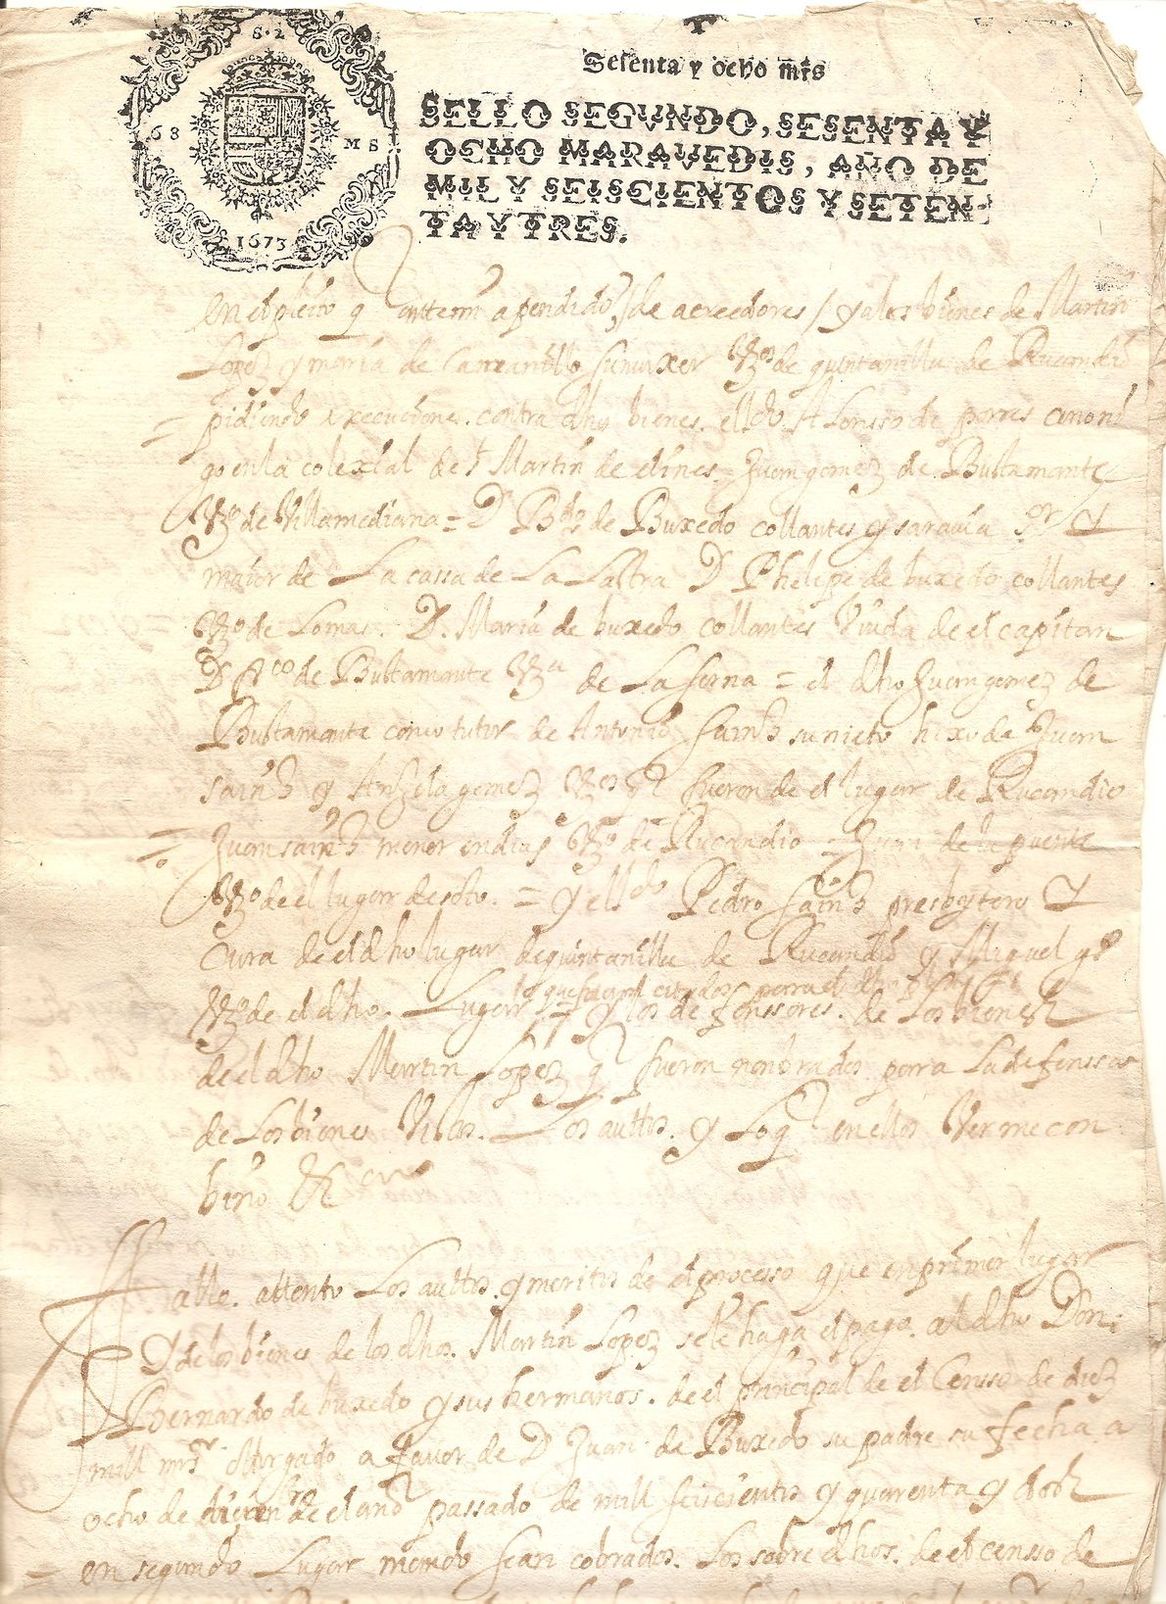 8·2
68 MS
1673
Sesenta y ocho mrs
SELLO SEGVNDO, SESENTA Y
OCHO MARAVEDIS, AÑO DE
MIL Y SEISCIENTOS Y SETEN-
TA Y TRES.
en el pleito q ante mi a pendido, de acreedores / y a los bienes de Martin
Lopez y maria de su muxer Vos de quintanilla de Rucandio
pidiendo execucione. contra dhos bienes. el ldo. Alonsso de porres canoni
go en la colexial de St Martin de elines = Juan gomez de Bustamante
Vo de Villamediana = D Bdo de Buxedo collantes y saravia sor Y
maior de La cassa de La Lastra D Phelipe de buxedo collantes
Vo de Lomas. D. Maria de buxedo collantes Viuda de el capitan
D Fco de Bustamante Va de La serna = el dho Juan gomez de
Bustamante como tutor de Antonio sainz su nieto hixo de Juan
sainz y Anxela gomez Vos q fueron de el lugar de Rucandio
Juan sainz menor en dias Vo de Rucandio = Juan de la puente
Vo de el lugar de soto. = y el ldo Pedro sainz presbytero Y
Cura de el dho lugar de quintanilla de Rucandio y Miguel gs
lo que fueron citados para el dho pleito
Vo de el dho. Lugar = y los defenssores. de Los bienes
de el dho Martin Lopez q fueron nonbrados para La defenssa
de Los bienes Vistos. Los auttos. y Lo q en ellos Ver me con
bino &c
Fallo. attento Los auttos. y meritos de el processo que en primer lugar
Y de los bienes de los dhos. Martin Lopez se le haga el pago. al dho Don
bernardo de buxedo y sus hermanos. de el principal de el Censso de diez
mill mrs otorgado a favor de D Juan de Buxedo su padre su fecha a
ocho de diciembre de el año passado de mill seiscientos y quarenta y dos
en segundo Lugar mando sean cobrados. Los sobre dhos. de el censso de